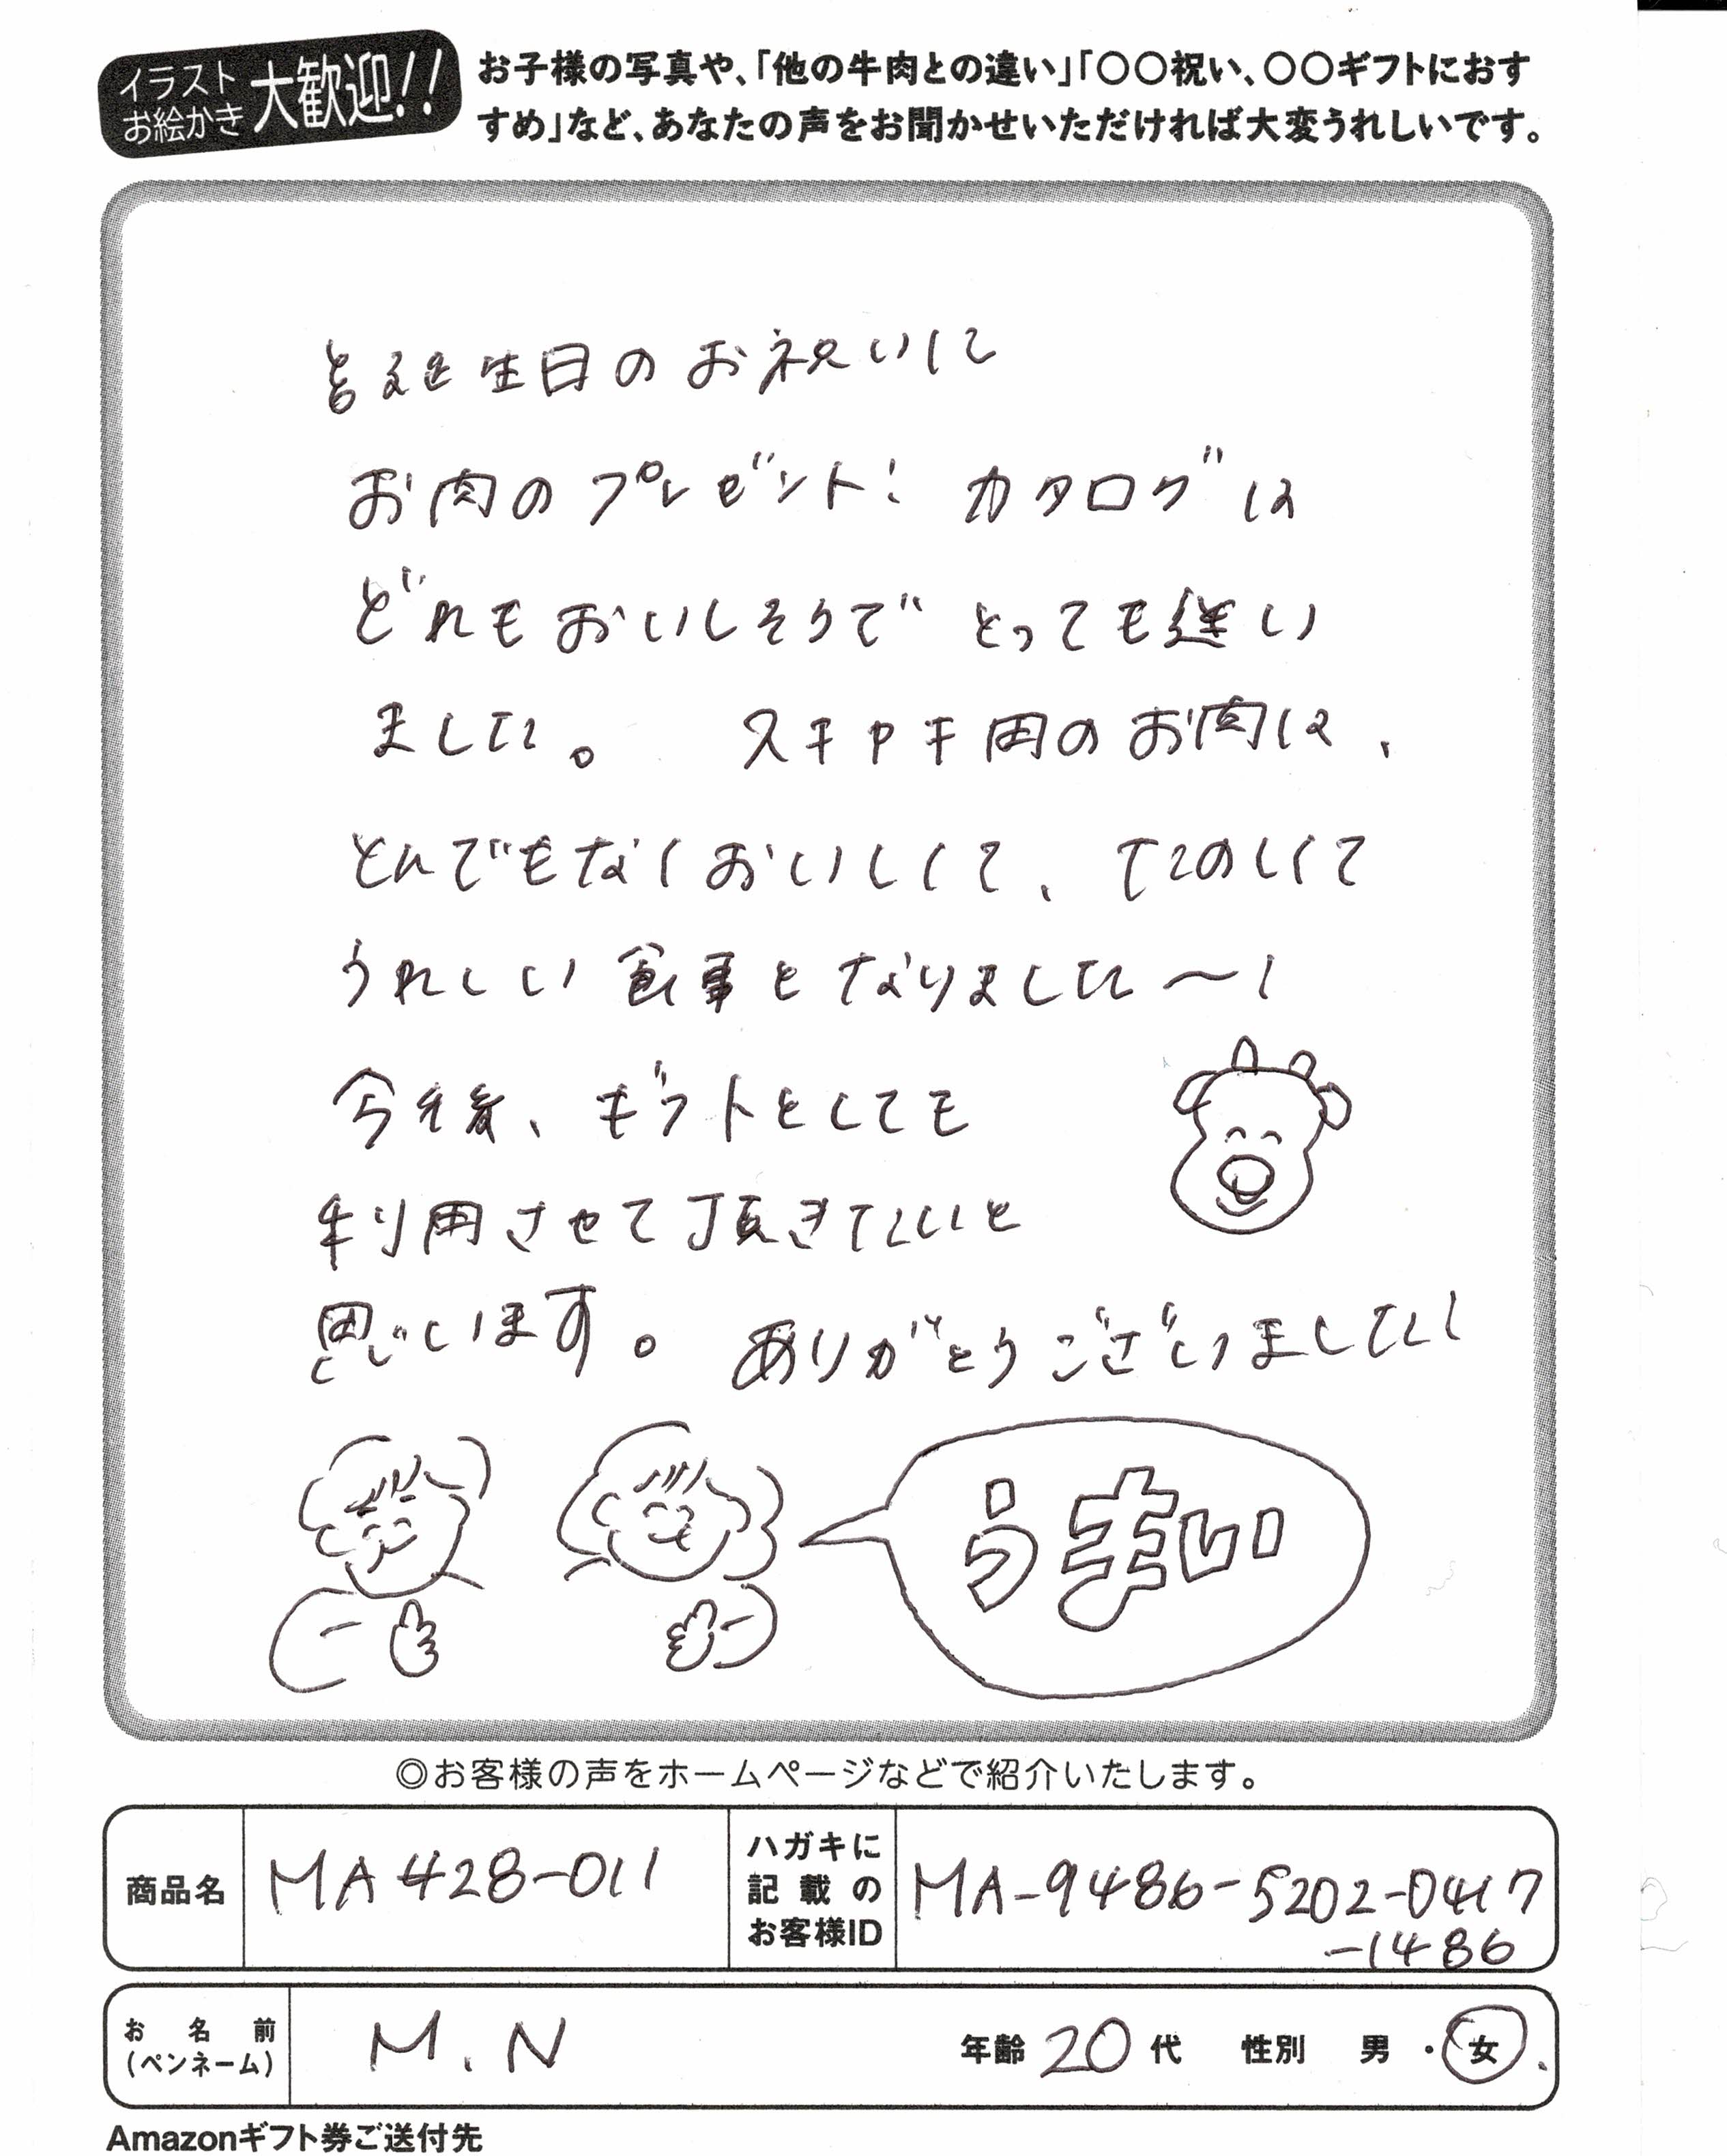 イラスト
お絵かき
大歓迎!!
お子様の写真や、「他の牛肉との違い」「〇〇祝い、〇〇ギフトにおす
すめ」など、あなたの声をお聞かせいただければ大変うれしいです。
誕生日のお祝いに
お肉のプレゼント! カタログは
どれもおいしそうで とっても迷い
ました。 スキヤキ用のお肉は、
とんでもなくおいしくて、たのしくて
うれしい食事となりました〜!
今後、ギフトとしても
利用させて頂きたいと
思います。 ありがとうございました!
うまい
◎お客様の声をホームページなどで紹介いたします。
商品名 MA428-011
ハガキに
記載の
お客様ID
MA-9486-5202-0417
-1486
お名前
(ペンネーム)
M.N 年齢 20代 性別 男・女
Amazonギフト券ご送付先